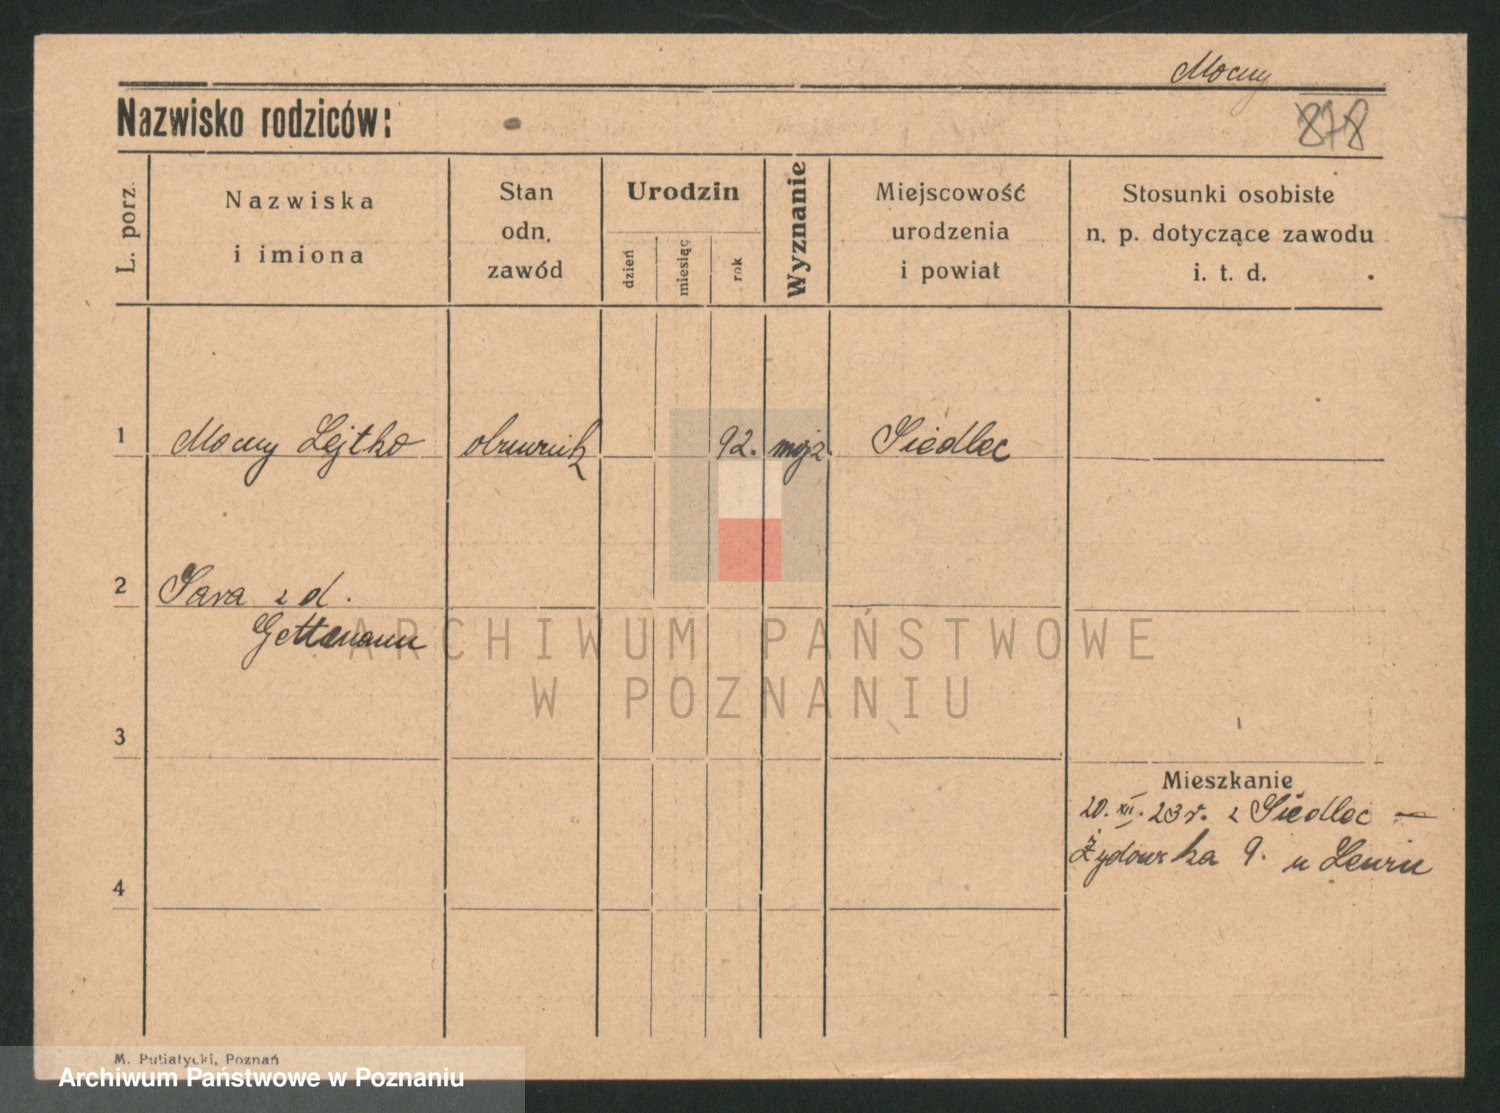 Mocny
Nazwisko rodziców:
878
L. porz.
Nazwiska
i imiona
Stan
odn.
zawód
Urodzin
dzień
miesiąc
rok
Wyznanie
Miejscowość
urodzenia
i powiat
Stosunki osobiste
n. p. dotyczące zawodu
i. t. d.
1 Mocny Lejtko 92. mojż. Siedlec
2 Sara z d.
ARCHIWUM PAŃSTWOWE
W POZNANIU
3
Mieszkanie
20. XII. 23 r. z Siedlec —
Żydowska 9. u Lewin
4
M. Putiatycki, Poznań
Archiwum Państwowe w Poznaniu